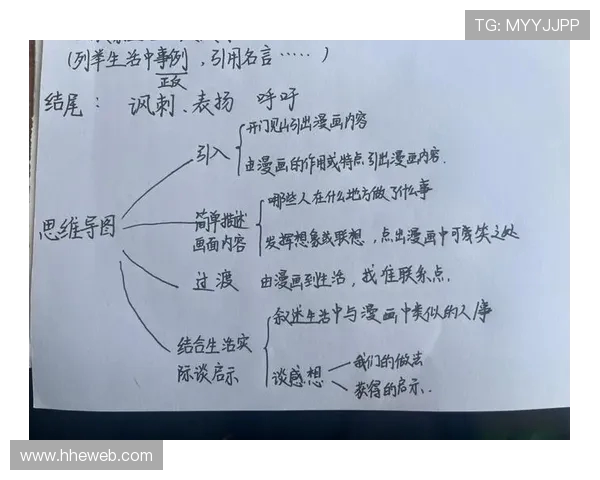 TG: MYYJJPP
(列举生活中事例，引用名言……)
正反
结尾： 讽刺、表扬 呼吁
思维导图
引入
开门见山引出漫画内容
由漫画的作用或特点引出漫画内容.
简单描述
画面内容
哪些人在什么地方做了什么事
发挥想象或联想，点出漫画中可笑之处
过渡 由漫画到生活，找准联系点.
结合生活实
际谈启示
叙述生活中与漫画中类似的人事
谈感想
我们的做法
获得的启示.
www.hheweb.com